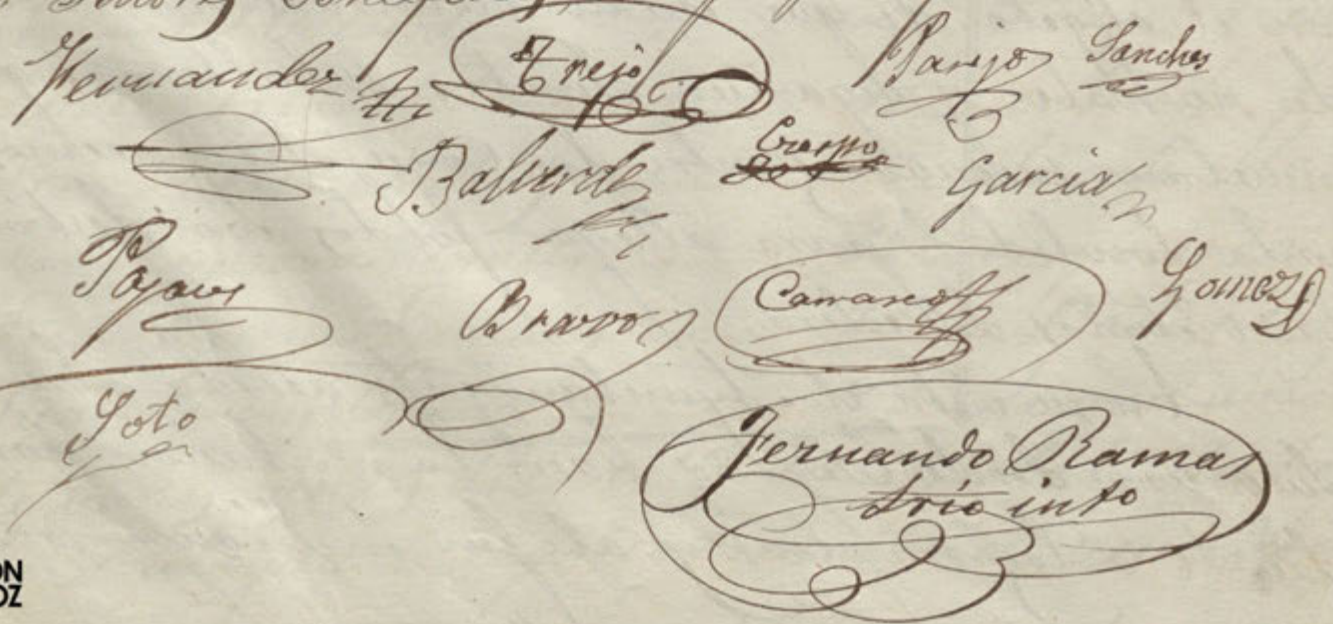 Hernandez Trejo Parejo Sanches
Balverde Crespo Garcia
Pajares Bravo Carrasco Gomez
Soto
Fernando Ramas
srio into
ON
OZ